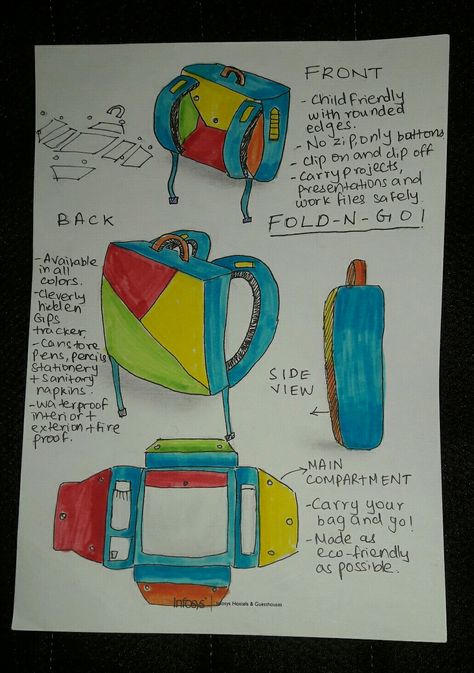 FRONT
- Child friendly
with rounded
edges.
- No zip, only buttons
- Clip on and clip off
- Carry projects,
presentations and
work files safely.
FOLD-N-GO!
BACK
- Available
in all
colors.
- Cleverly
hidden
GPS
tracker.
- Can store
pens, pencils
stationery
+ sanitary
napkins.
- Waterproof
interior +
exterior + fire
proof.
SIDE
VIEW
MAIN
COMPARTMENT
- Carry your
bag and go!
- Made as
eco-friendly
as possible.
Infosys | Infosys Hostels & Guesthouses